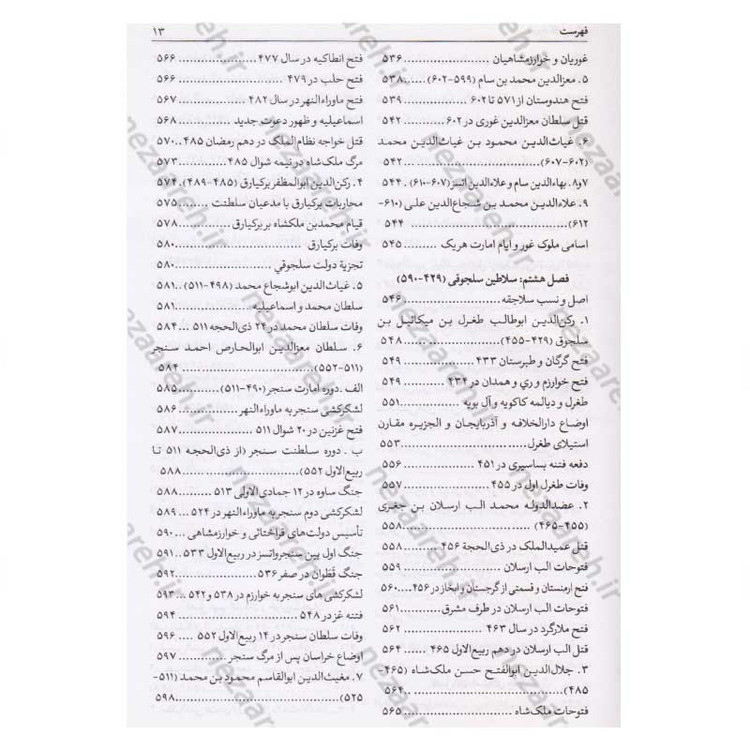 فهرست
۱۳
غوریان و خوارزمشاهیان ........................ ۵۳۶
۵. معزالدین محمد بن سام (۵۹۹-۶۰۲)..... ۵۳۸
فتح هندوستان از ۵۷۱ تا ۶۰۲ ............... ۵۳۹
قتل سلطان معزالدین غوری در ۶۰۲ ......... ۵۴۲
۶. غیاث‌الدین محمود بن غیاث‌الدین محمد
(۶۰۲-۶۰۷) ................................. ۵۴۲
۷و۸. بهاءالدین سام و علاءالدین اتسز (۶۰۷-۶۱۰) . ۵۴۴
۹. علاءالدین محمد بن شجاع‌الدین علی (۶۱۰-
۶۱۲)....................................... ۵۴۴
اسامی ملوک غور و ایام امارت هریک ....... ۵۴۵
فصل هشتم: سلاطین سلجوقی (۴۲۹-۵۹۰)
اصل و نسب سلاجقه ........................ ۵۴۶
۱. رکن‌الدین ابوطالب طغرل بن میکائیل بن
سلجوق (۴۲۹-۴۵۵).......................... ۵۴۸
فتح گرگان و طبرستان ۴۳۳ .................. ۵۴۹
فتح خوارزم و ری و همدان در ۴۳۴ .......... ۵۴۹
طغرل و دیالمه کاکویه و آل بویه ............. ۵۵۱
اوضاع دارالخلافه و آذربایجان و الجزیره مقارن
استیلای طغرل................................ ۵۵۳
دفعه فتنه بساسیری در ۴۵۱ .................. ۵۵۶
وفات طغرل اول در ۴۵۵ ..................... ۵۵۷
۲. عضدالدوله محمد الب ارسلان بن جغری
(۴۵۵-۴۶۵)................................. ۵۵۸
قتل عمیدالملک در ذی‌الحجة ۴۵۶ ......... ۵۵۸
فتوحات الب ارسلان ......................... ۵۵۹
فتح ارمنستان و قسمتی از گرجستان و ابخاز در ۴۵۶.... ۵۶۰
فتوحات الب ارسلان در طرف مشرق ......... ۵۶۱
فتح ملازگرد در سال ۴۶۳ .................... ۵۶۲
قتل الب ارسلان در دهم ربیع‌الاول ۴۶۵ .... ۵۶۴
۳. جلال‌الدین ابوالفتح حسن ملک‌شاه (۴۶۵-
۴۸۵) ....................................... ۵۶۴
فتوحات ملک‌شاه ............................ ۵۶۵
فتح انطاکیه در سال ۴۷۷ .................... ۵۶۶
فتح حلب در ۴۷۹ ........................... ۵۶۶
فتح ماوراءالنهر در سال ۴۸۲ ................. ۵۶۷
اسماعیلیه و ظهور دعوت جدید ............. ۵۶۸
قتل خواجه نظام‌الملک در دهم رمضان ۴۸۵ .. ۵۷۰
مرگ ملک‌شاه در نیمه شوال ۴۸۵ ........... ۵۷۳
۴. رکن‌الدین ابوالمظفر برکیارق (۴۸۵-۴۸۹). ۵۷۴
محاربات برکیارق با مدعیان سلطنت ........ ۵۷۵
قیام محمدبن ملکشاه بر برکیارق ............ ۵۷۸
وفات برکیارق ............................... ۵۸۰
تجزیة دولت سلجوقی ........................ ۵۸۰
۵. غیاث‌الدین ابوشجاع محمد (۴۹۸-۵۱۱).. ۵۸۱
سلطان محمد و اسماعیلیه ................... ۵۸۱
وفات سلطان محمد در ۲۴ ذی‌الحجه ۵۱۱ .... ۵۸۴
۶. سلطان معزالدین ابوالحارص احمد سنجر
(۵۱۱-۵۵۲)................................. ۵۸۴
الف . دوره امارت سنجر (۴۹۰-۵۱۱)........ ۵۸۵
لشکرکشی سنجر به ماوراءالنهر .............. ۵۸۶
فتح غزنین در ۲۰ شوال ۵۱۱ ................. ۵۸۷
ب . دوره سلطنت سنجر (از ذی‌الحجه ۵۱۱ تا
ربیع‌الاول ۵۵۲) .............................. ۵۸۸
جنگ ساوه در ۱۲ جمادی‌الاولی ۵۱۳ ....... ۵۸۸
لشکرکشی دوم سنجر به ماوراءالنهر در ۵۲۴ ... ۵۸۹
تأسیس دولت‌های قراختائی و خوارزمشاهی ... ۵۹۰
جنگ اول بین سنجر واتسز در ربیع‌الاول ۵۳۳ .. ۵۹۱
جنگ قَطوان در صفر ۵۳۶ ................... ۵۹۲
لشکرکشی های سنجر به خوارزم در ۵۳۸ و ۵۴۲ ... ۵۹۳
فتنه غز در ۵۴۸ ............................. ۵۹۴
وفات سلطان سنجر در ۱۴ ربیع‌الاول ۵۵۲ .... ۵۹۶
اوضاع خراسان پس از مرگ سنجر ........... ۵۹۷
۷. مغیث‌الدین ابوالقاسم محمود بن محمد (۵۱۱-
۵۲۵)....................................... ۵۹۸
nezaareh.ir